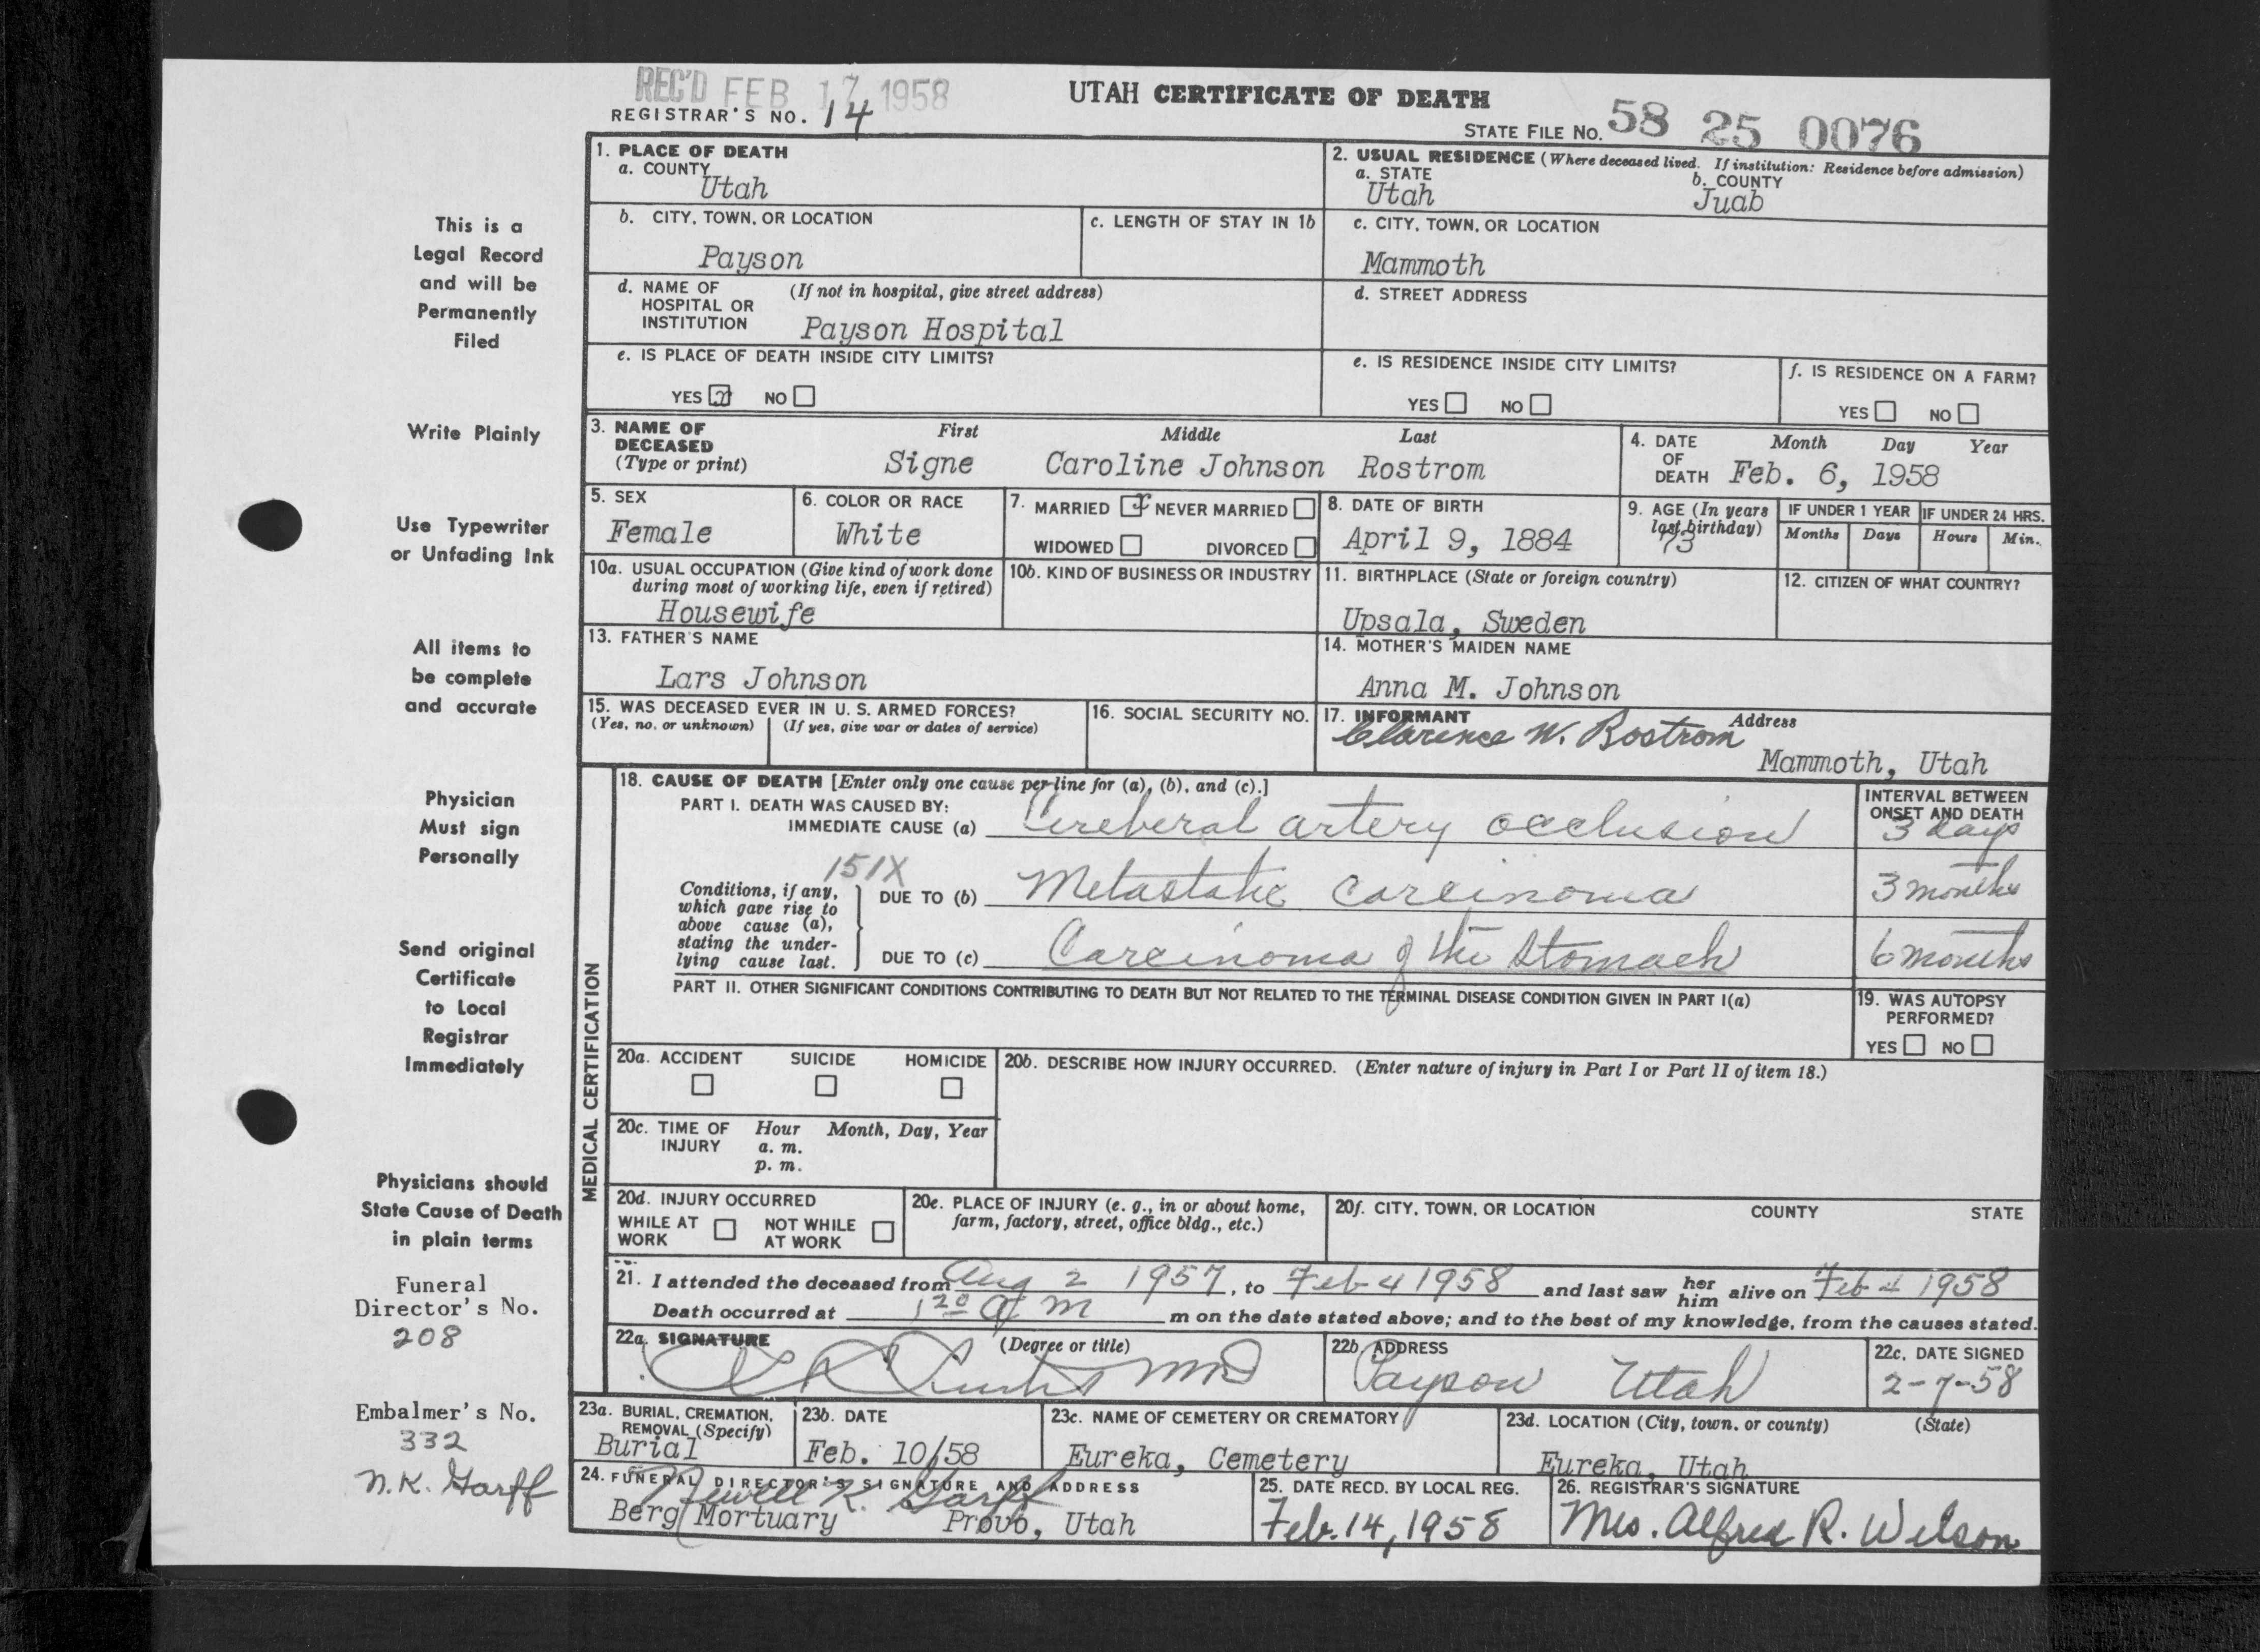 REC'D FEB 17 1958
UTAH CERTIFICATE OF DEATH
REGISTRAR'S NO. 14
STATE FILE NO. 58 25 0076
This is a
Legal Record
and will be
Permanently
Filed
Write Plainly
Use Typewriter
or Unfading Ink
All items to
be complete
and accurate
Physician
Must sign
Personally
Send original
Certificate
to Local
Registrar
Immediately
Physicians should
State Cause of Death
in plain terms
Funeral
Director's No.
208
Embalmer's No.
332
N.K. Garff
1. PLACE OF DEATH
a. COUNTY
Utah
2. USUAL RESIDENCE (Where deceased lived. If institution: Residence before admission)
a. STATE
Utah
b. COUNTY
Juab
b. CITY, TOWN, OR LOCATION
Payson
c. LENGTH OF STAY IN 1b
c. CITY, TOWN, OR LOCATION
Mammoth
d. NAME OF (If not in hospital, give street address)
HOSPITAL OR
INSTITUTION Payson Hospital
d. STREET ADDRESS
e. IS PLACE OF DEATH INSIDE CITY LIMITS?
YES x NO
e. IS RESIDENCE INSIDE CITY LIMITS?
YES NO
f. IS RESIDENCE ON A FARM?
YES NO
3. NAME OF First Middle Last
DECEASED
(Type or print) Signe Caroline Johnson Rostrom
4. DATE Month Day Year
OF
DEATH Feb. 6, 1958
5. SEX
Female
6. COLOR OR RACE
White
7. MARRIED x NEVER MARRIED
WIDOWED DIVORCED
8. DATE OF BIRTH
April 9, 1884
9. AGE (In years
last birthday)
73
IF UNDER 1 YEAR
Months Days
IF UNDER 24 HRS.
Hours Min.
10a. USUAL OCCUPATION (Give kind of work done
during most of working life, even if retired)
Housewife
10b. KIND OF BUSINESS OR INDUSTRY
11. BIRTHPLACE (State or foreign country)
Upsala, Sweden
12. CITIZEN OF WHAT COUNTRY?
13. FATHER'S NAME
Lars Johnson
14. MOTHER'S MAIDEN NAME
Anna M. Johnson
15. WAS DECEASED EVER IN U. S. ARMED FORCES?
(Yes, no, or unknown) (If yes, give war or dates of service)
16. SOCIAL SECURITY NO.
17. INFORMANT Address
Clarence W. Rostrom
Mammoth, Utah
MEDICAL CERTIFICATION
18. CAUSE OF DEATH [Enter only one cause per line for (a), (b), and (c).]
PART I. DEATH WAS CAUSED BY:
IMMEDIATE CAUSE (a) Cereberal artery occlusion
INTERVAL BETWEEN
ONSET AND DEATH
3 days
151X
Conditions, if any,
which gave rise to
above cause (a),
stating the under-
lying cause last.
DUE TO (b) Metastatic Carcinoma
3 months
DUE TO (c) Carcinoma of the Stomach
6 months
PART II. OTHER SIGNIFICANT CONDITIONS CONTRIBUTING TO DEATH BUT NOT RELATED TO THE TERMINAL DISEASE CONDITION GIVEN IN PART I(a)
19. WAS AUTOPSY
PERFORMED?
YES NO
20a. ACCIDENT SUICIDE HOMICIDE
20b. DESCRIBE HOW INJURY OCCURRED. (Enter nature of injury in Part I or Part II of item 18.)
20c. TIME OF Hour Month, Day, Year
INJURY a. m.
p. m.
20d. INJURY OCCURRED
WHILE AT WORK NOT WHILE AT WORK
20e. PLACE OF INJURY (e. g., in or about home,
farm, factory, street, office bldg., etc.)
20f. CITY, TOWN, OR LOCATION COUNTY STATE
21. I attended the deceased from Aug 2 1957, to Feb 4 1958 and last saw her him alive on Feb 4 1958
Death occurred at 1 20 a m m on the date stated above; and to the best of my knowledge, from the causes stated.
22a. SIGNATURE (Degree or title)
MD
22b. ADDRESS
Payson Utah
22c. DATE SIGNED
2-7-58
23a. BURIAL, CREMATION,
REMOVAL (Specify)
Burial
23b. DATE
Feb. 10/58
23c. NAME OF CEMETERY OR CREMATORY
Eureka, Cemetery
23d. LOCATION (City, town, or county) (State)
Eureka, Utah
24. FUNERAL DIRECTOR'S SIGNATURE AND ADDRESS
Newell K. Garff
Berg Mortuary Provo, Utah
25. DATE RECD. BY LOCAL REG.
Feb. 14, 1958
26. REGISTRAR'S SIGNATURE
Mrs. Alfred R. Wilson